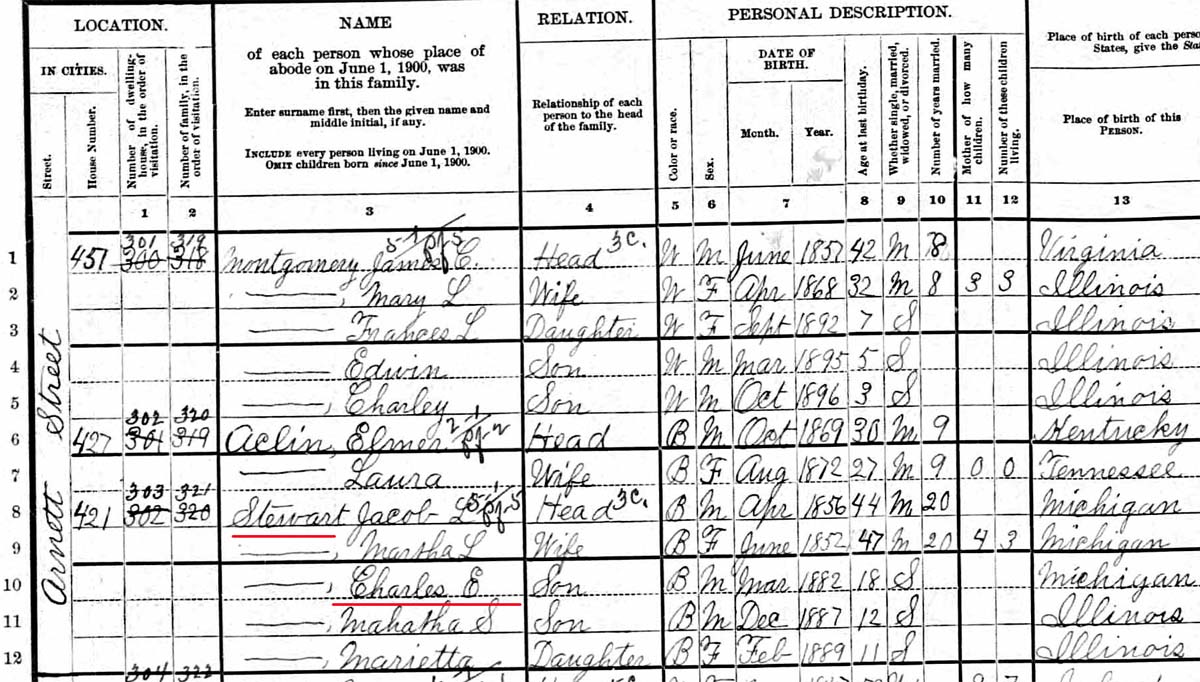 LOCATION.
IN CITIES.
Street.
House Number.
Number of dwelling-house, in the order of visitation.
Number of family, in the order of visitation.
NAME
of each person whose place of
abode on June 1, 1900, was
in this family.
Enter surname first, then the given name and
middle initial, if any.
INCLUDE every person living on June 1, 1900.
OMIT children born since June 1, 1900.
RELATION.
Relationship of each
person to the head
of the family.
PERSONAL DESCRIPTION.
Color or race.
Sex.
DATE OF
BIRTH.
Month. Year.
Age at last birthday.
Whether single, married, widowed, or divorced.
Number of years married.
Mother of how many children.
Number of these children living.
Place of birth of each pers
States, give the Sta
Place of birth of this
PERSON.
1 2 3 4 5 6 7 8 9 10 11 12 13
Arnett Street
301 319
1 451 300 318 Montgomery James C. Head 3C. W M June 1857 42 M 8 Virginia
2 Mary L Wife W F Apr 1868 32 M 8 3 3 Illinois
3 Frances L Daughter W F Sept 1892 7 S Illinois
4 Edwin Son W M Mar 1895 5 S Illinois
5 Charley Son W M Oct 1896 3 S Illinois
302 320
6 427 301 319 Aclin, Elmer Head B M Oct 1869 30 M 9 Kentucky
7 Laura Wife B F Aug 1872 27 M 9 0 0 Tennessee
303 321
8 421 302 320 Stewart Jacob L Head 3C. B M Apr 1856 44 M 20 Michigan
9 Martha L Wife B F June 1852 47 M 20 4 3 Michigan
10 Charles E Son B M Mar 1882 18 S Michigan
11 Mahatha S Son B M Dec 1887 12 S Illinois
12 Marietta Daughter B F Feb 1889 11 S Illinois
304 322